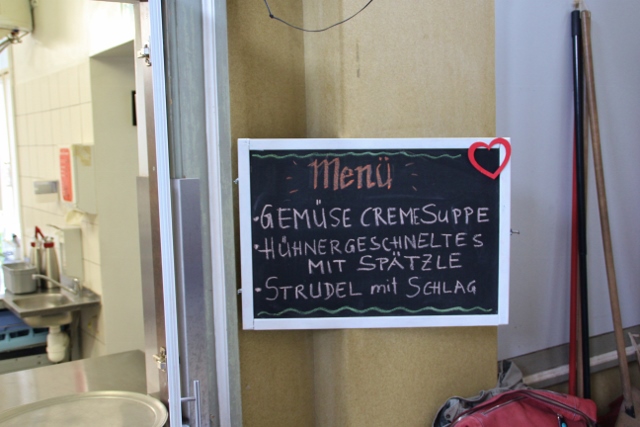 Menü
• GEMÜSE CREMESUPPE
• HÜHNERGESCHNELTES
MIT SPÄTZLE
• STRUDEL mit SCHLAG